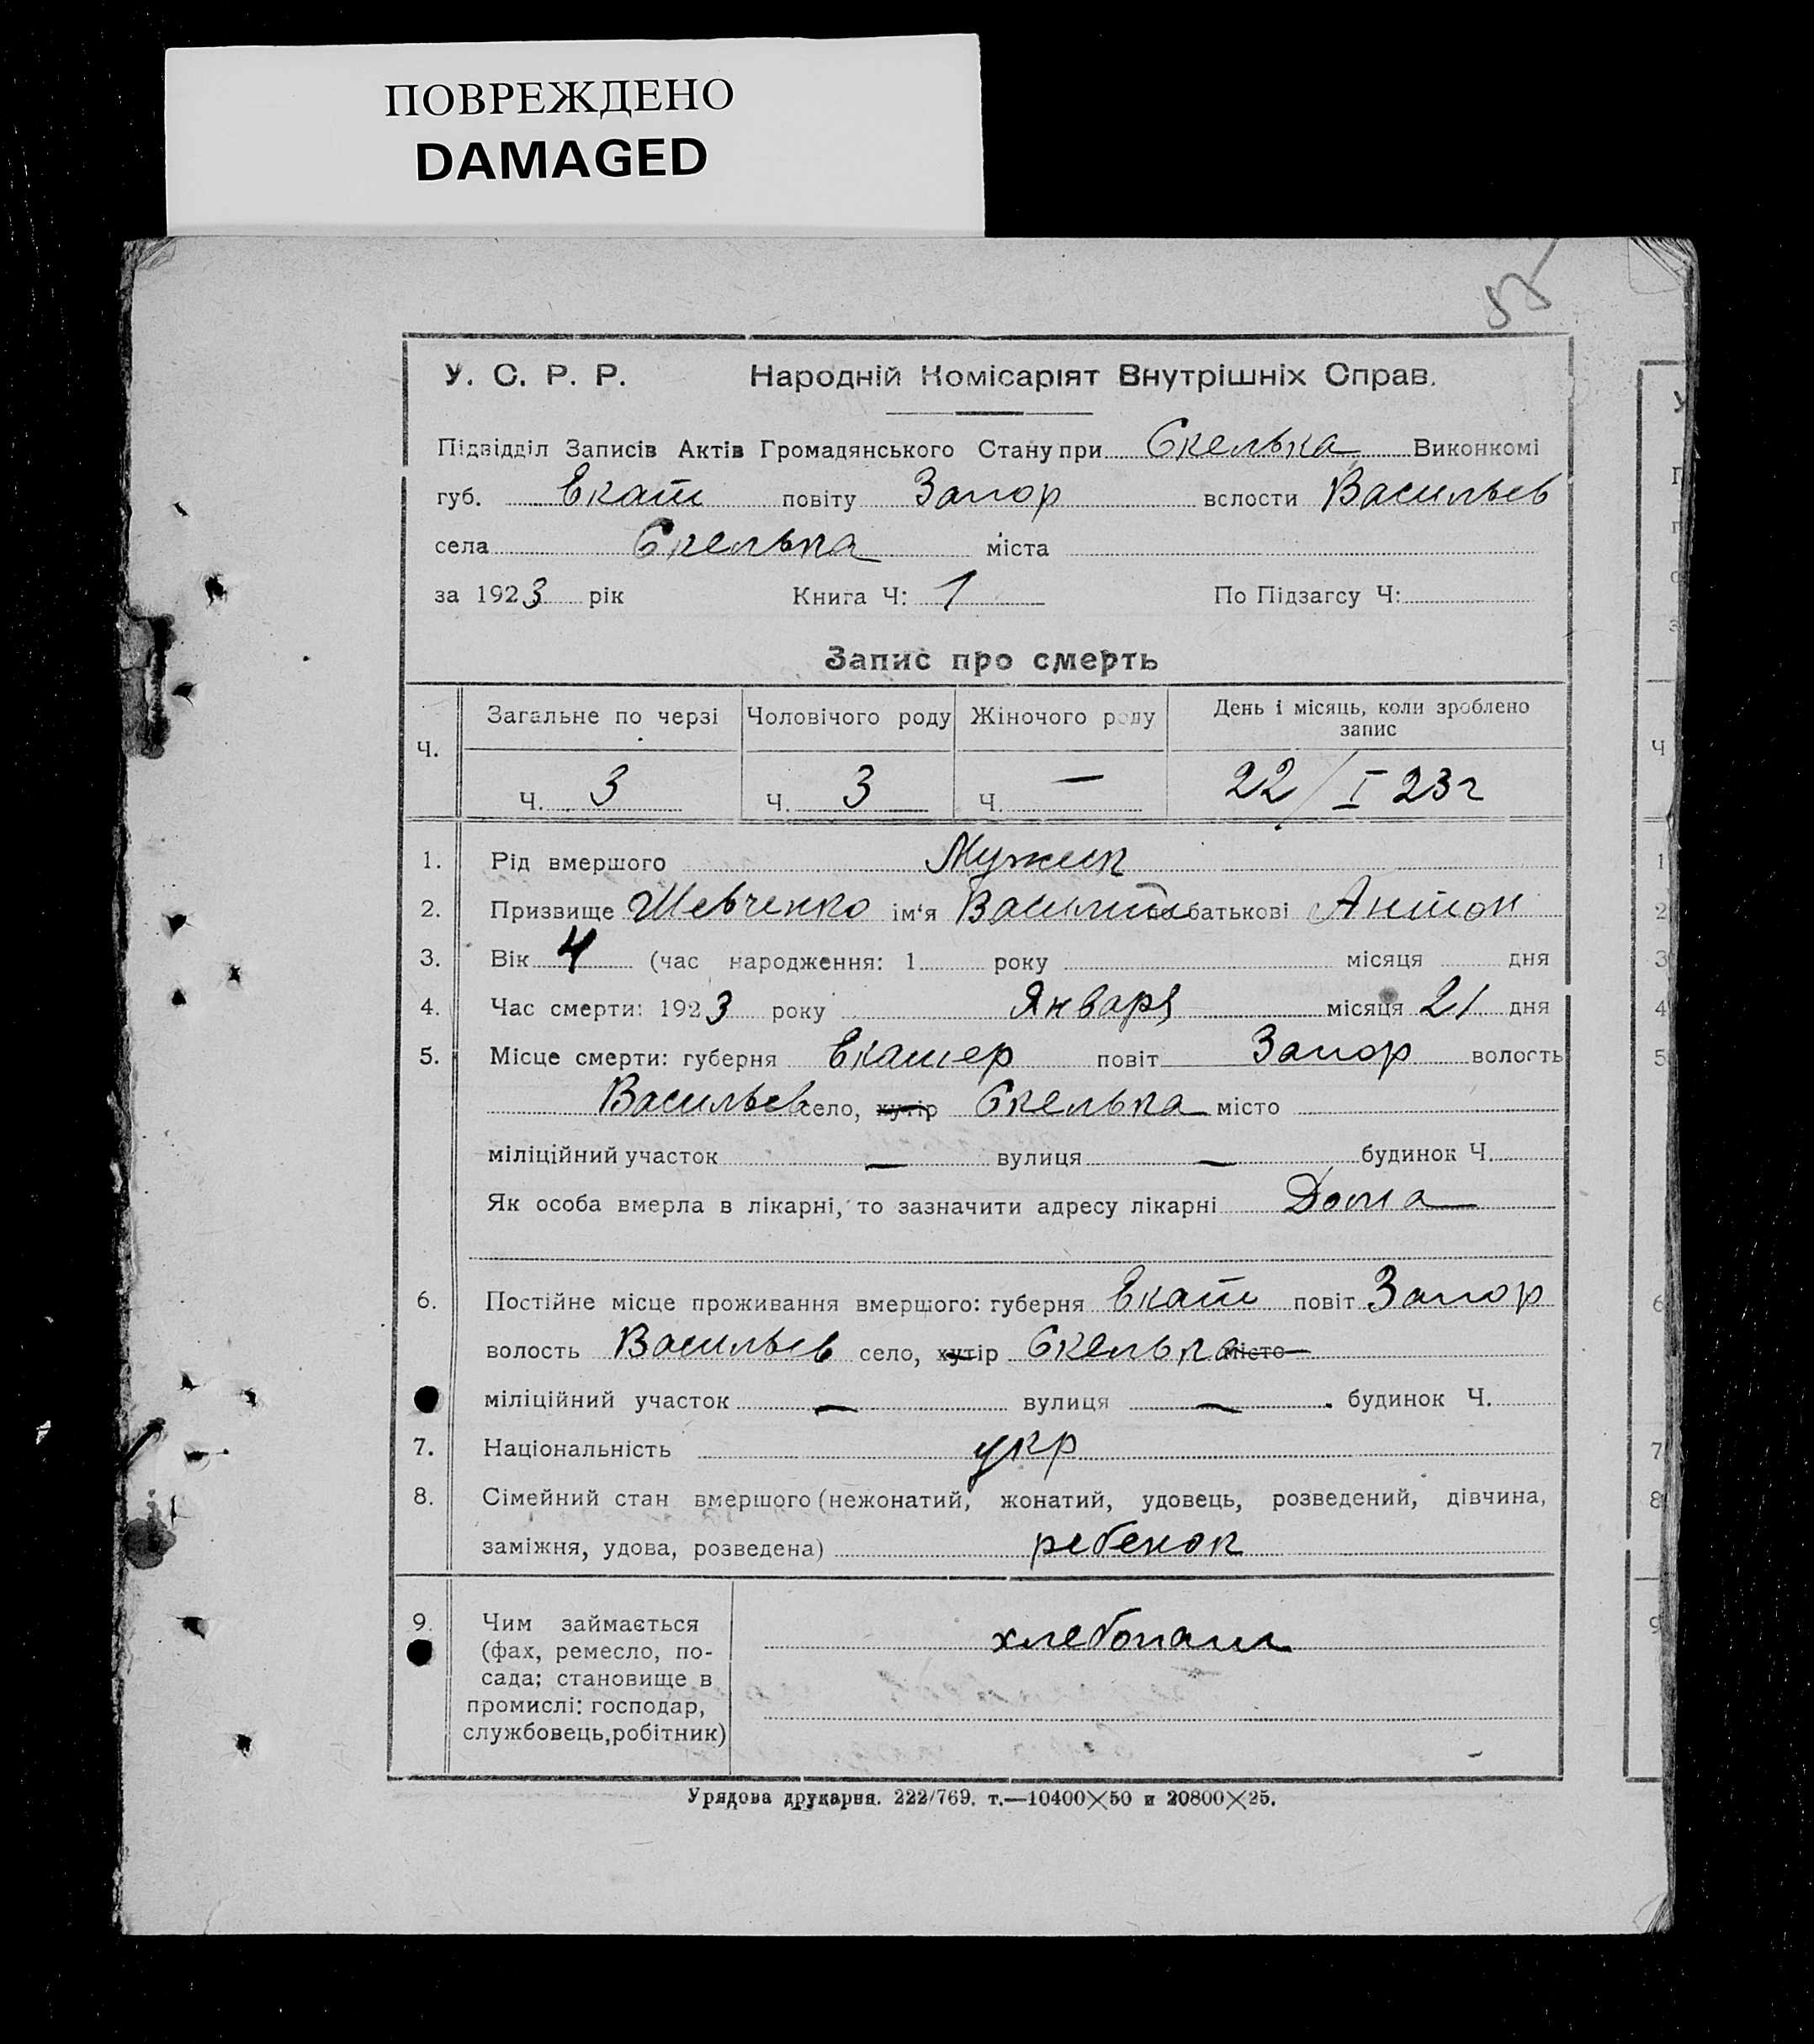 ПОВРЕЖДЕНО
DAMAGED
55
У. С. Р. Р. Народній Комісаріят Внутрішніх Справ.
Підвідділ Записів Актів Громадянського Стану при Скелька Виконкомі
губ. Екат повіту Запор вслости Васильев
села Скелька міста
за 1923 рік Книга Ч: 1 По Підзагсу Ч:
Запис про смерть
Ч. Загальне по черзі Чоловічого роду Жіночого роду День і місяць, коли зроблено запис
Ч. 3 Ч. 3 Ч. — 22/I 23г
1. Рід вмершого Мужск
2. Призвище Шевченко ім'я Василий по батькові Антон
3. Вік 4 (час народження: 1 року місяця дня
4. Час смерти: 1923 року Январь місяця 21 дня
5. Місце смерти: губерня Екатер повіт Запор волость
Васильев село, хутір Скелька місто
міліційний участок — вулиця — будинок Ч.
Як особа вмерла в лікарні, то зазначити адресу лікарні Дома
6. Постійне місце проживання вмершого: губерня Екат повіт Запор
волость Васильев село, хутір Скелька місто
міліційний участок — вулиця — будинок Ч.
7. Національність укр
8. Сімейний стан вмершого (нежонатий, жонатий, удовець, розведений, дівчина,
заміжня, удова, розведена) ребенок
9. Чим займається хлебопаш
(фах, ремесло, по-
сада; становище в
промислі: господар,
службовець, робітник)
Урядова друкарня. 222/769. т.—10400×50 и 20800×25.